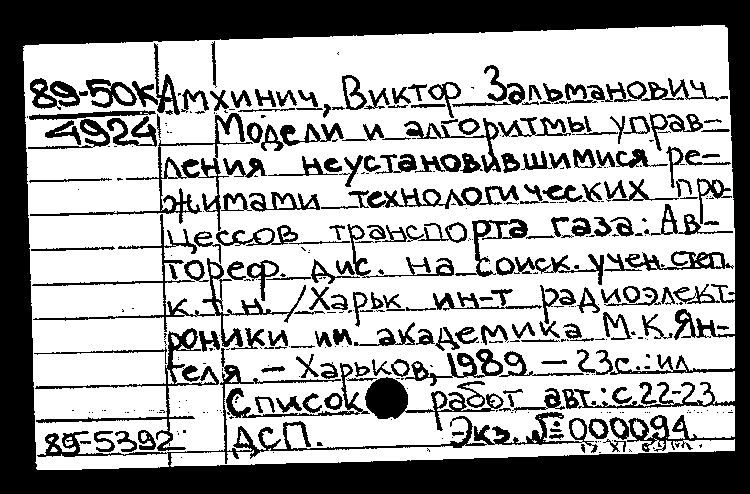 89-50К Амхинич, Виктор Зальманович
4924 Модели и алгоритмы управ-
ления неустановившимися ре-
жимами технологических про-
цессов транспорта газа: Ав-
тореф. дис. на соиск. учен. степ.
к.т.н. /Харьк. ин-т радиоэлект-
роники им. академика М.К.Ян-
геля. – Харьков, 1989. – 23с.: ил
Список работ авт.: с.22-23
89-5392 ДСП. Экз. №000094.